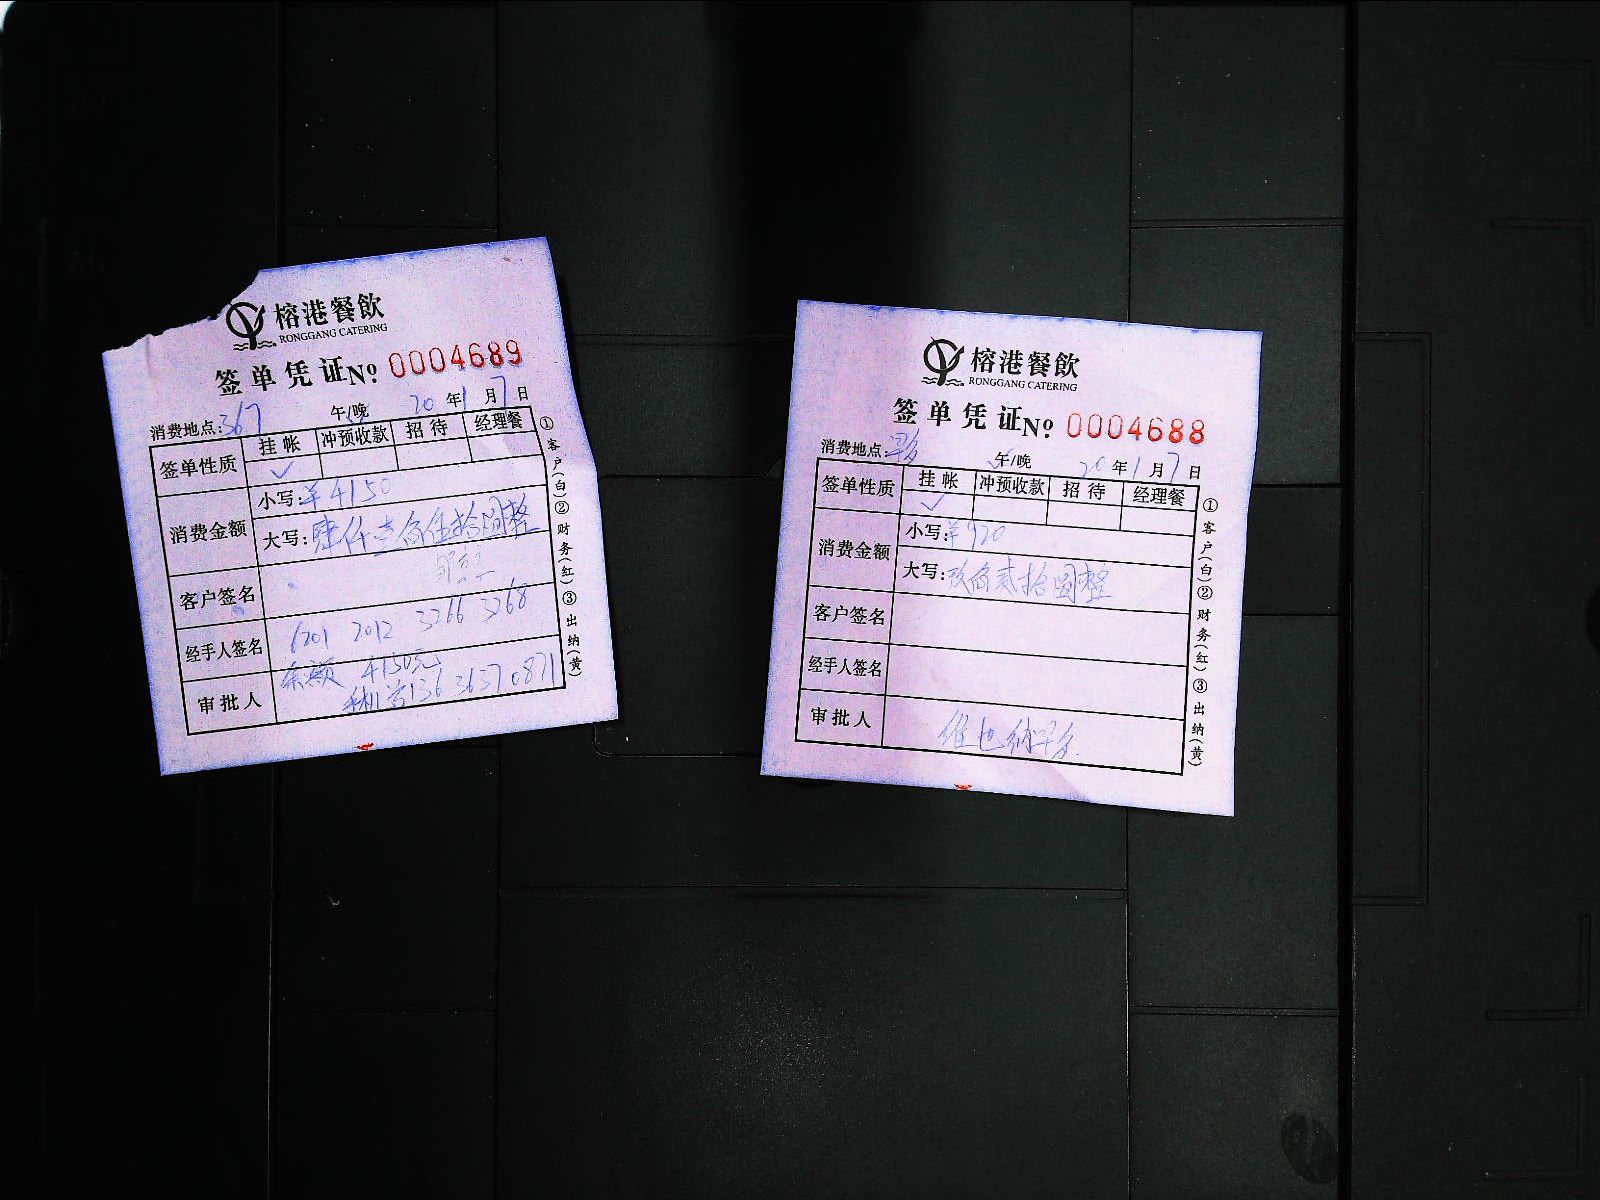 榕港餐飲
RONGGANG CATERING
签单凭证No. 0004689
消费地点:367 午/晚 20年1月7日
签单性质 挂帐 冲预收款 招待 经理餐
✓
消费金额 小写:¥4150
大写:肆仟壹佰伍拾圆整
客户签名
经手人签名 6201 2012 3266 3268
余额 4150元
审批人 13636370871
①客户(白)②财务(红)③出纳(黄)
榕港餐飲
RONGGANG CATERING
签单凭证No. 0004688
消费地点: 午/晚 20年1月7日
签单性质 挂帐 冲预收款 招待 经理餐
✓
消费金额 小写:¥920
大写:玖佰贰拾圆整
客户签名
经手人签名
审批人 维也纳
①客户(白)②财务(红)③出纳(黄)